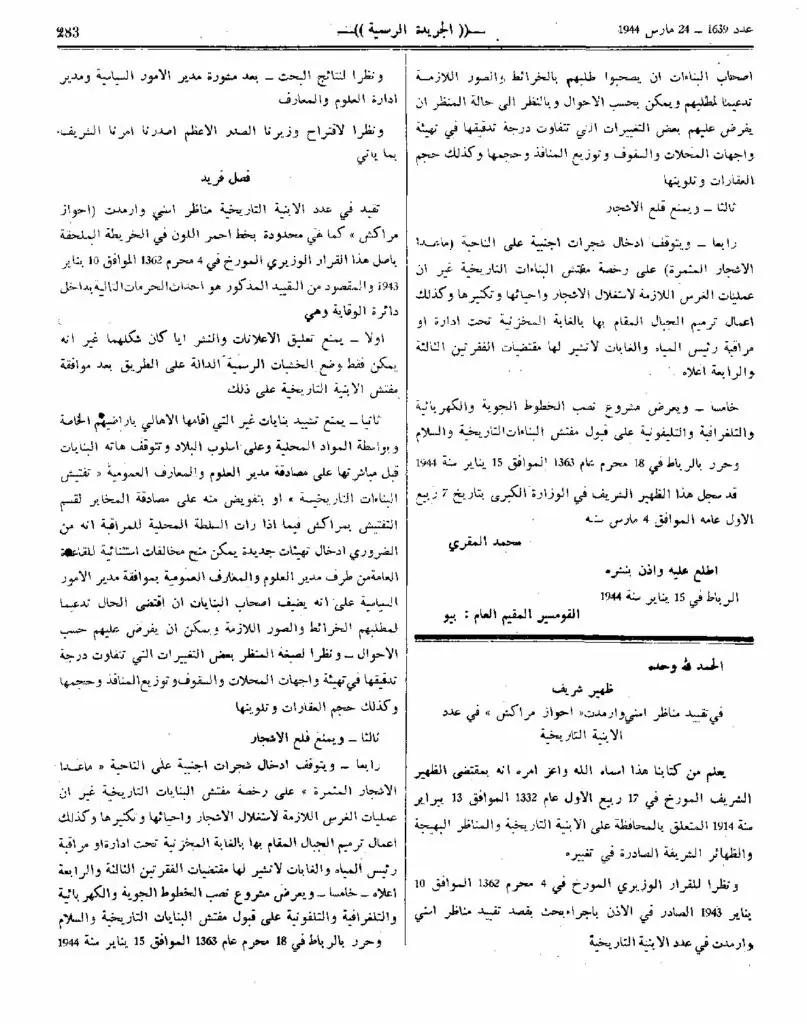 عدد 1639 ـ 24 مارس 1944
ـــ(( الجريدة الرسمية ))ـــ
283
اصحاب البناءات ان يصحبوا طلبهم بالخرائط والصور اللازمة
تدعيما لمطلبهم ويمكن بحسب الاحوال وبالنظر الى حالة المنظر ان
يفرض عليهم بعض التغييرات التي تتفاوت درجة تدقيقها في تهيئة
واجهات المحلات والسقوف وتوزيع المنافذ وحجمها وكذلك حجم
العقارات وتلوينها
ثالثا ـ ويمنع قلع الاشجار
رابعا ـ ويتوقف ادخال شجرات اجنبية على الناحية (ماعدا
الاشجار المثمرة) على رخصة مفتش البناءات التاريخية غير ان
عمليات الغرس اللازمة لاستغلال الاشجار واحيائها وتكثيرها وكذلك
اعمال ترميم الجبال المقام بها بالغابة المخزنية تحت ادارة او
مراقبة رئيس المياه والغابات لاتشير لها مقتضيات الفقرتين الثالثة
والرابعة اعلاه
خامسا ـ ويعرض مشروع نصب الخطوط الجوية والكهربائية
والتلغرافية والتليفونية على قبول مفتش البناءات التاريخية والسلام
وحرر بالرباط في 18 محرم عام 1363 الموافق 15 يناير سنة 1944
قد سجل هذا الظهير الشريف في الوزارة الكبرى بتاريخ 7 ربيع
الاول عامه الموافق 4 مارس سنه
محمد المقري
اطلع عليه واذن بنشره
الرباط في 15 يناير سنة 1944
القومسير المقيم العام : بيو
الحمد لله وحده
ظهير شريف
في تقييد مناظر اسني وارمدت « احواز مراكش » في عدد
الابنية التاريخية
يعلم من كتابنا هذا اسماه الله واعز امره انه بمقتضى الظهير
الشريف المورخ في 17 ربيع الاول عام 1332 الموافق 13 براير
سنة 1914 المتعلق بالمحافظة على الابنية التاريخية والمناظر البهيجة
والظهائر الشريفة الصادرة في تغييره
ونظرا للقرار الوزيري المورخ في 4 محرم 1362 الموافق 10
يناير 1943 الصادر في الاذن باجراء بحث بقصد تقييد مناظر اسني
وارمدت في عدد الابنية التاريخية
ونظرا لنتائج البحث ـ بعد مشورة مدير الامور السياسية ومدير
ادارة العلوم والمعارف
ونظرا لاقتراح وزيرنا الصدر الاعظم اصدرنا امرنا الشريف
بما ياتي
فصل فريد
تقيد في عدد الابنية التاريخية مناظر اسني وارمدت (احواز
مراكش » كما هي محدودة بخط احمر اللون في الخريطة الملحقة
باصل هذا القرار الوزيري المورخ في 4 محرم 1362 الموافق 10 يناير
1943 والمقصود من التقييد المذكور هو احداث الحرمات التالية بداخل
دائرة الوقاية وهي
اولا ـ يمنع تعليق الاعلانات والنشر ايا كان شكلهما غير انه
يمكن فقط وضع الخشبات الرسمية الدالة على الطريق بعد موافقة
مفتش الابنية التاريخية على ذلك
ثانيا ـ يمنع تشييد بنايات غير التي اقامها الاهالي باراضيهم الخاصة
وبواسطة المواد المحلية وعلى اسلوب البلاد وتتوقف هاته البنايات
قبل مباشرتها على مصادقة مدير العلوم والمعارف العمومية « تفتيش
البناءات التاريخية » او بتفويض منه على مصادقة المخابر لقسم
التفتيش بمراكش فيما اذا رات السلطة المحلية للمراقبة انه من
الضروري ادخال تهيئات جديدة يمكن منح مخالفات استثنائية للقاعدة
العامة من طرف مدير العلوم والمعارف العمومية بموافقة مدير الامور
السياسية على انه يضيف اصحاب البنايات ان اقتضى الحال تدعيما
لمطلبهم الخرائط والصور اللازمة ويمكن ان يفرض عليهم حسب
الاحوال ـ ونظرا لصبغة المنظر بعض التغييرات التي تتفاوت درجة
تدقيقها في تهيئة واجهات المحلات والسقوف وتوزيع المنافذ وحجمها
وكذلك حجم العقارات وتلوينها
ثالثا ـ ويمنع قلع الاشجار
رابعا ـ ويتوقف ادخال شجرات اجنبية على الناحية « ماعدا
الاشجار المثمرة » على رخصة مفتش البنايات التاريخية غير ان
عمليات الغرس اللازمة لاستغلال الاشجار واحيائها وتكثيرها وكذلك
اعمال ترميم الجبال المقام بها بالغابة المخزنية تحت ادارة او مراقبة
رئيس المياه والغابات لاتشير لها مقتضيات الفقرتين الثالثة والرابعة
اعلاه ـ خامسا ـ ويعرض مشروع نصب الخطوط الجوية والكهربائية
والتلغرافية والتلفونية على قبول مفتش البنايات التاريخية والسلام
وحرر بالرباط في 18 محرم عام 1363 الموافق 15 يناير سنة 1944